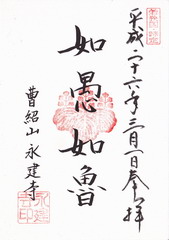 平成二十六年三月一日奉拝
如愚如魯
曹紹山永建寺